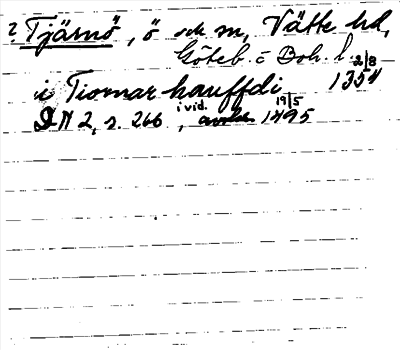 ? Tjärnö, ö och sn, Vätte hd,
Göteb. o Boh. l.
i Tiornar hauffdi 2/8 1354
DN 2, s. 266, i vid. 19/5 1495